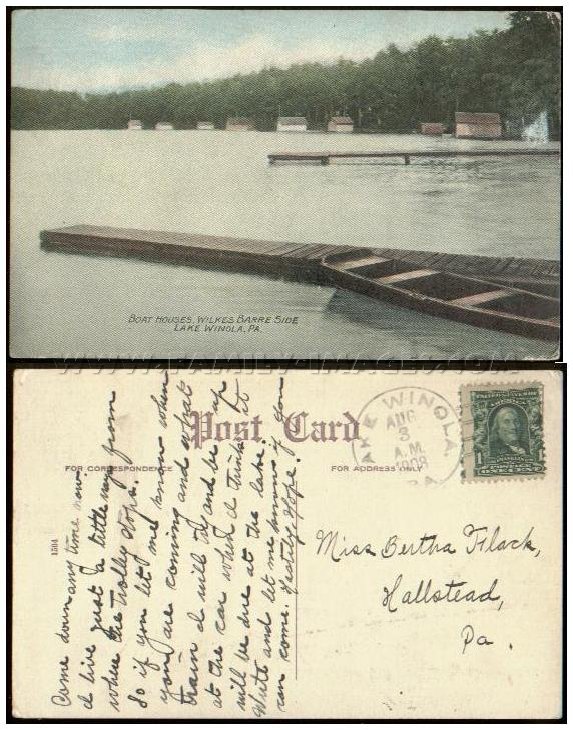 BOAT HOUSES, WILKES BARRE SIDE
LAKE WINOLA, PA.
WWW.FAMILY-IMAGES.COM
Post Card
FOR CORRESPONDENCE
FOR ADDRESS ONLY
1504
LAKE WINOLA,
AUG
3
A.M.
1908
PA.
1
POSTAGE
ONE CENT
Come down any time now.
I live just a little way from
where the trolly stops.
So if you let me know when
you are coming and what
train I will try and be up
at the car when I think it
will be due at the lake.
Write and let me know if you
can come. Hope.
Miss Bertha Flack,
Hallstead,
Pa.